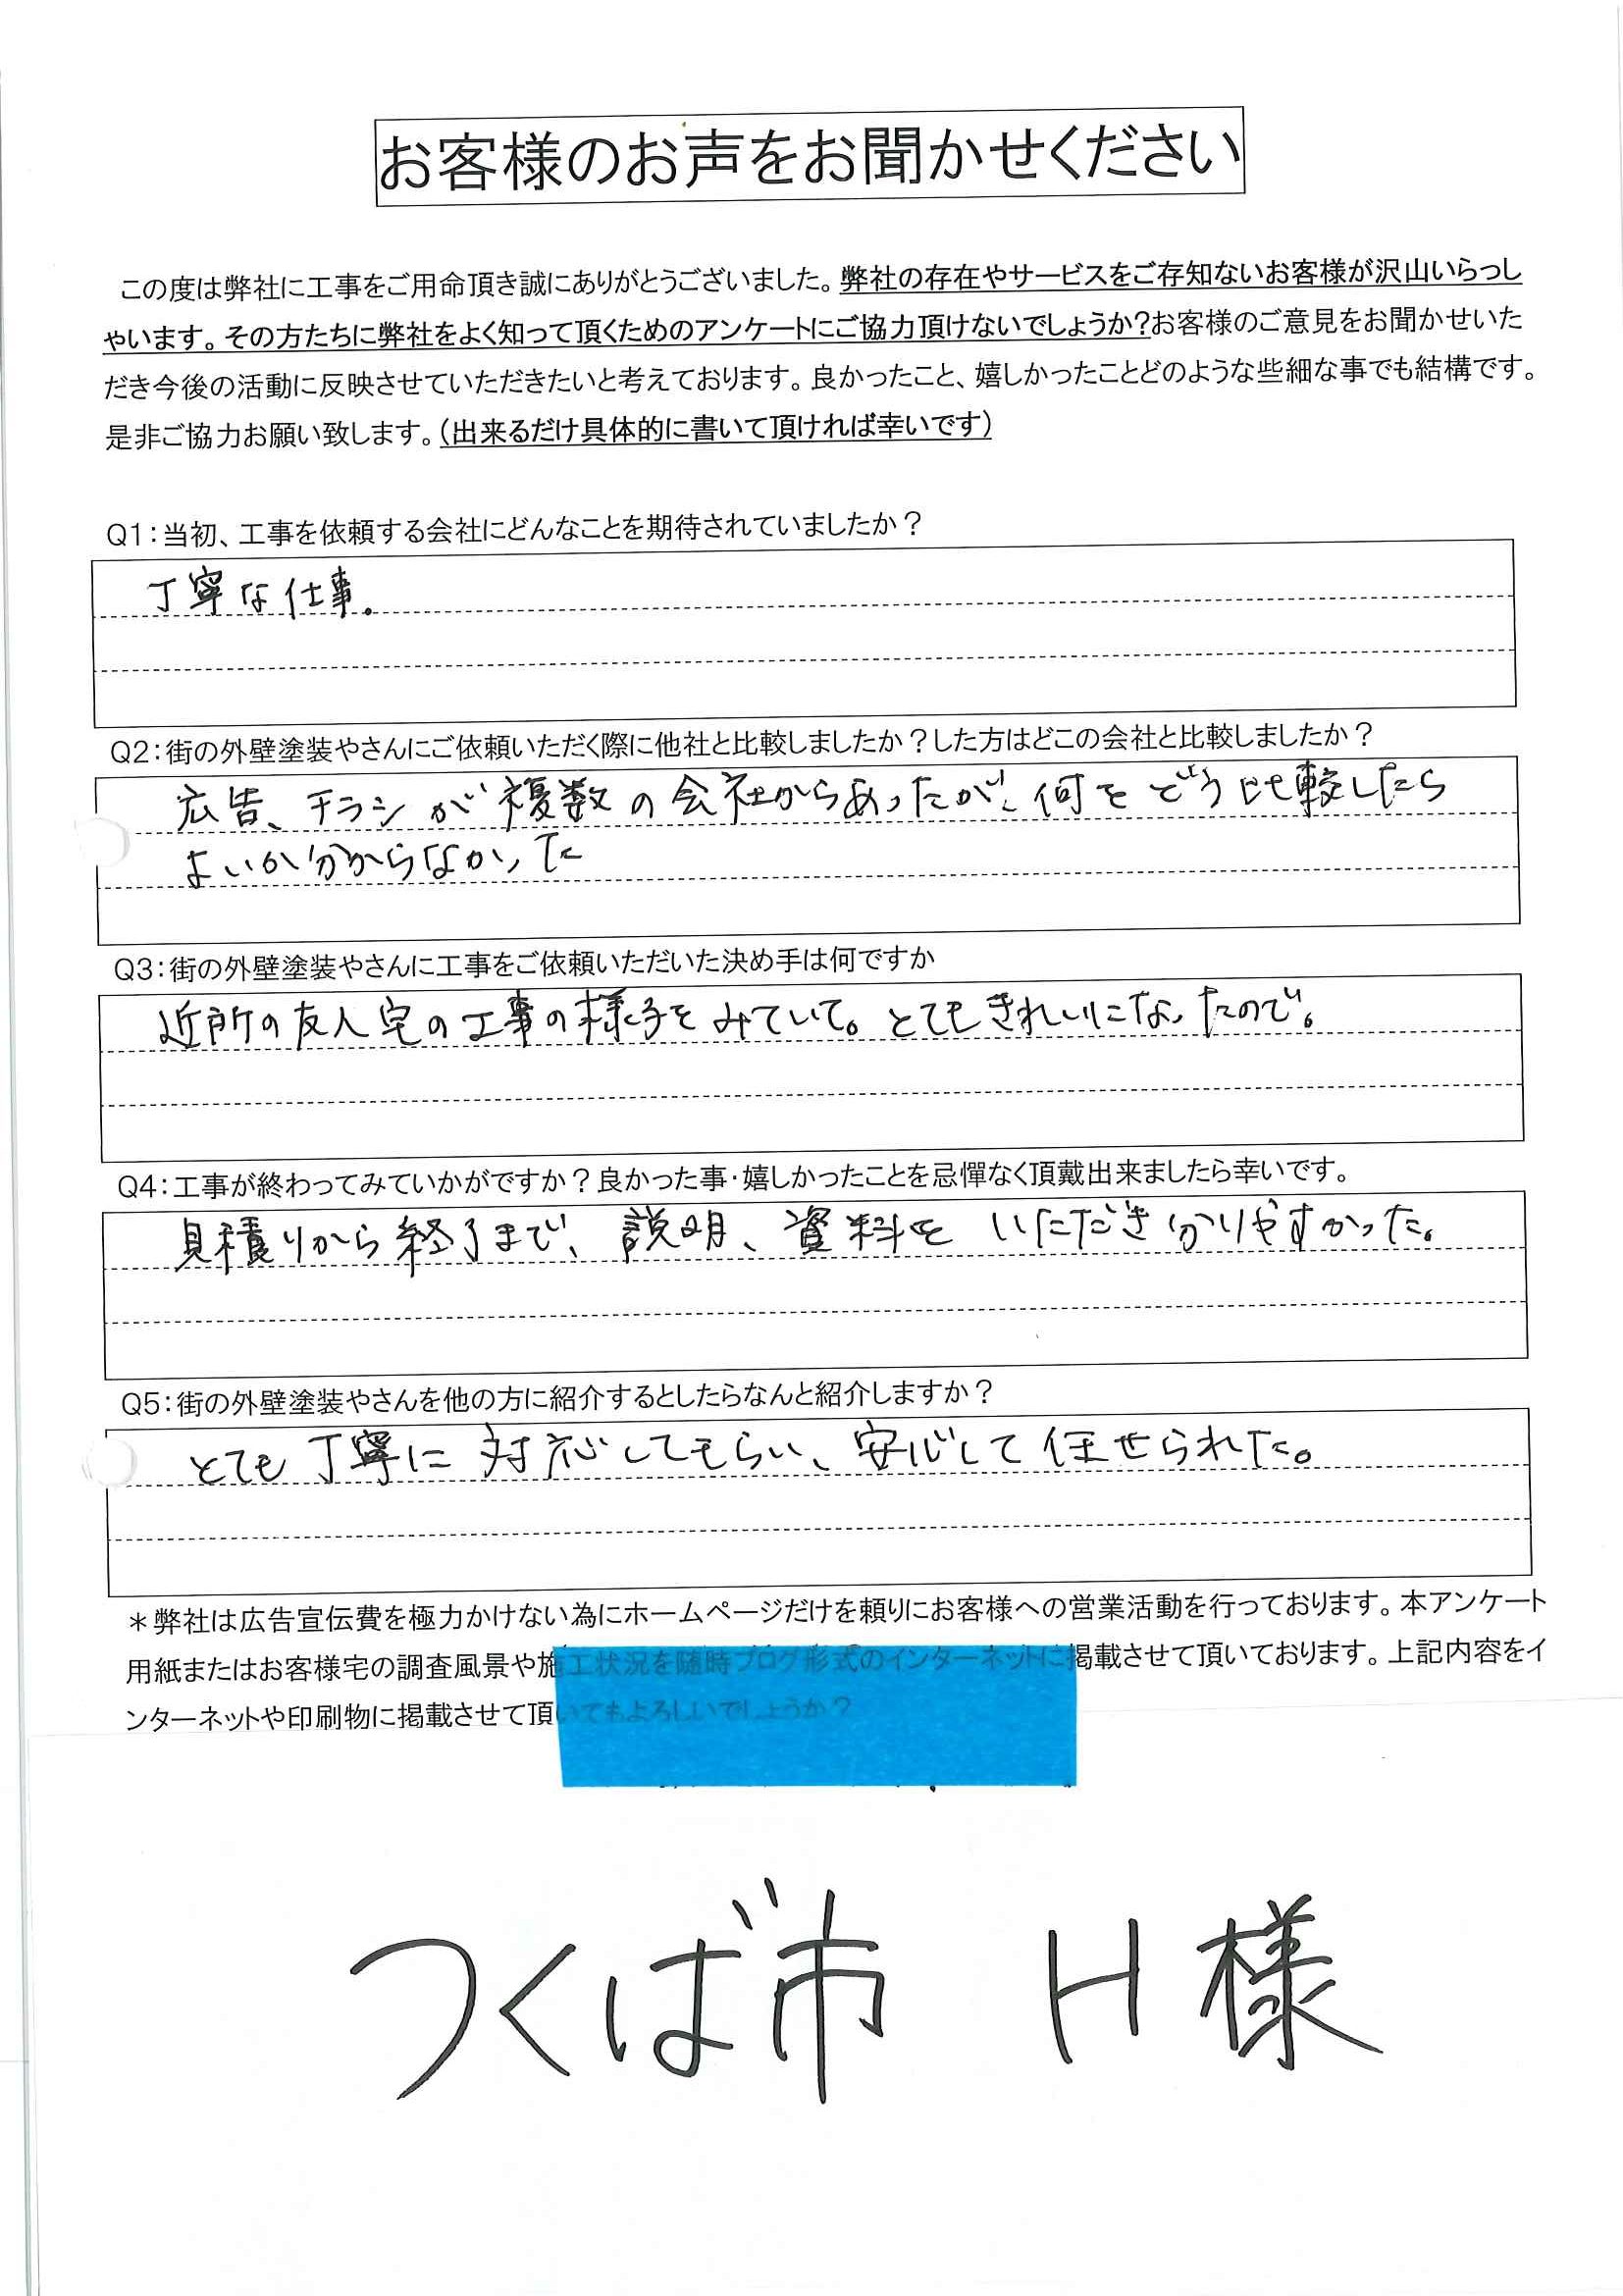 お客様のお声をお聞かせください
この度は弊社に工事をご用命頂き誠にありがとうございました。弊社の存在やサービスをご存知ないお客様が沢山いらっし
ゃいます。その方たちに弊社をよく知って頂くためのアンケートにご協力頂けないでしょうか?お客様のご意見をお聞かせいた
だき今後の活動に反映させていただきたいと考えております。良かったこと、嬉しかったことどのような些細な事でも結構です。
是非ご協力お願い致します。(出来るだけ具体的に書いて頂ければ幸いです)
Q1:当初、工事を依頼する会社にどんなことを期待されていましたか？
丁寧な仕事。
Q2:街の外壁塗装やさんにご依頼いただく際に他社と比較しましたか？した方はどこの会社と比較しましたか？
広告、チラシが複数の会社からあったが、何をどう比較したら
よいか分からなかった
Q3:街の外壁塗装やさんに工事をご依頼いただいた決め手は何ですか
近所の友人宅の工事の様子をみていて。とてもきれいになったので。
Q4:工事が終わってみていかがですか？良かった事・嬉しかったことを忌憚なく頂戴出来ましたら幸いです。
見積りから終了まで、説明、資料をいただき分りやすかった。
Q5:街の外壁塗装やさんを他の方に紹介するとしたらなんと紹介しますか？
とても丁寧に対応してもらい、安心して任せられた。
＊弊社は広告宣伝費を極力かけない為にホームページだけを頼りにお客様への営業活動を行っております。本アンケート
用紙またはお客様宅の調査風景や施工状況を随時ブログ形式のインターネットに掲載させて頂いております。上記内容をイ
ンターネットや印刷物に掲載させて頂いてもよろしいでしょうか？
つくば市 H様